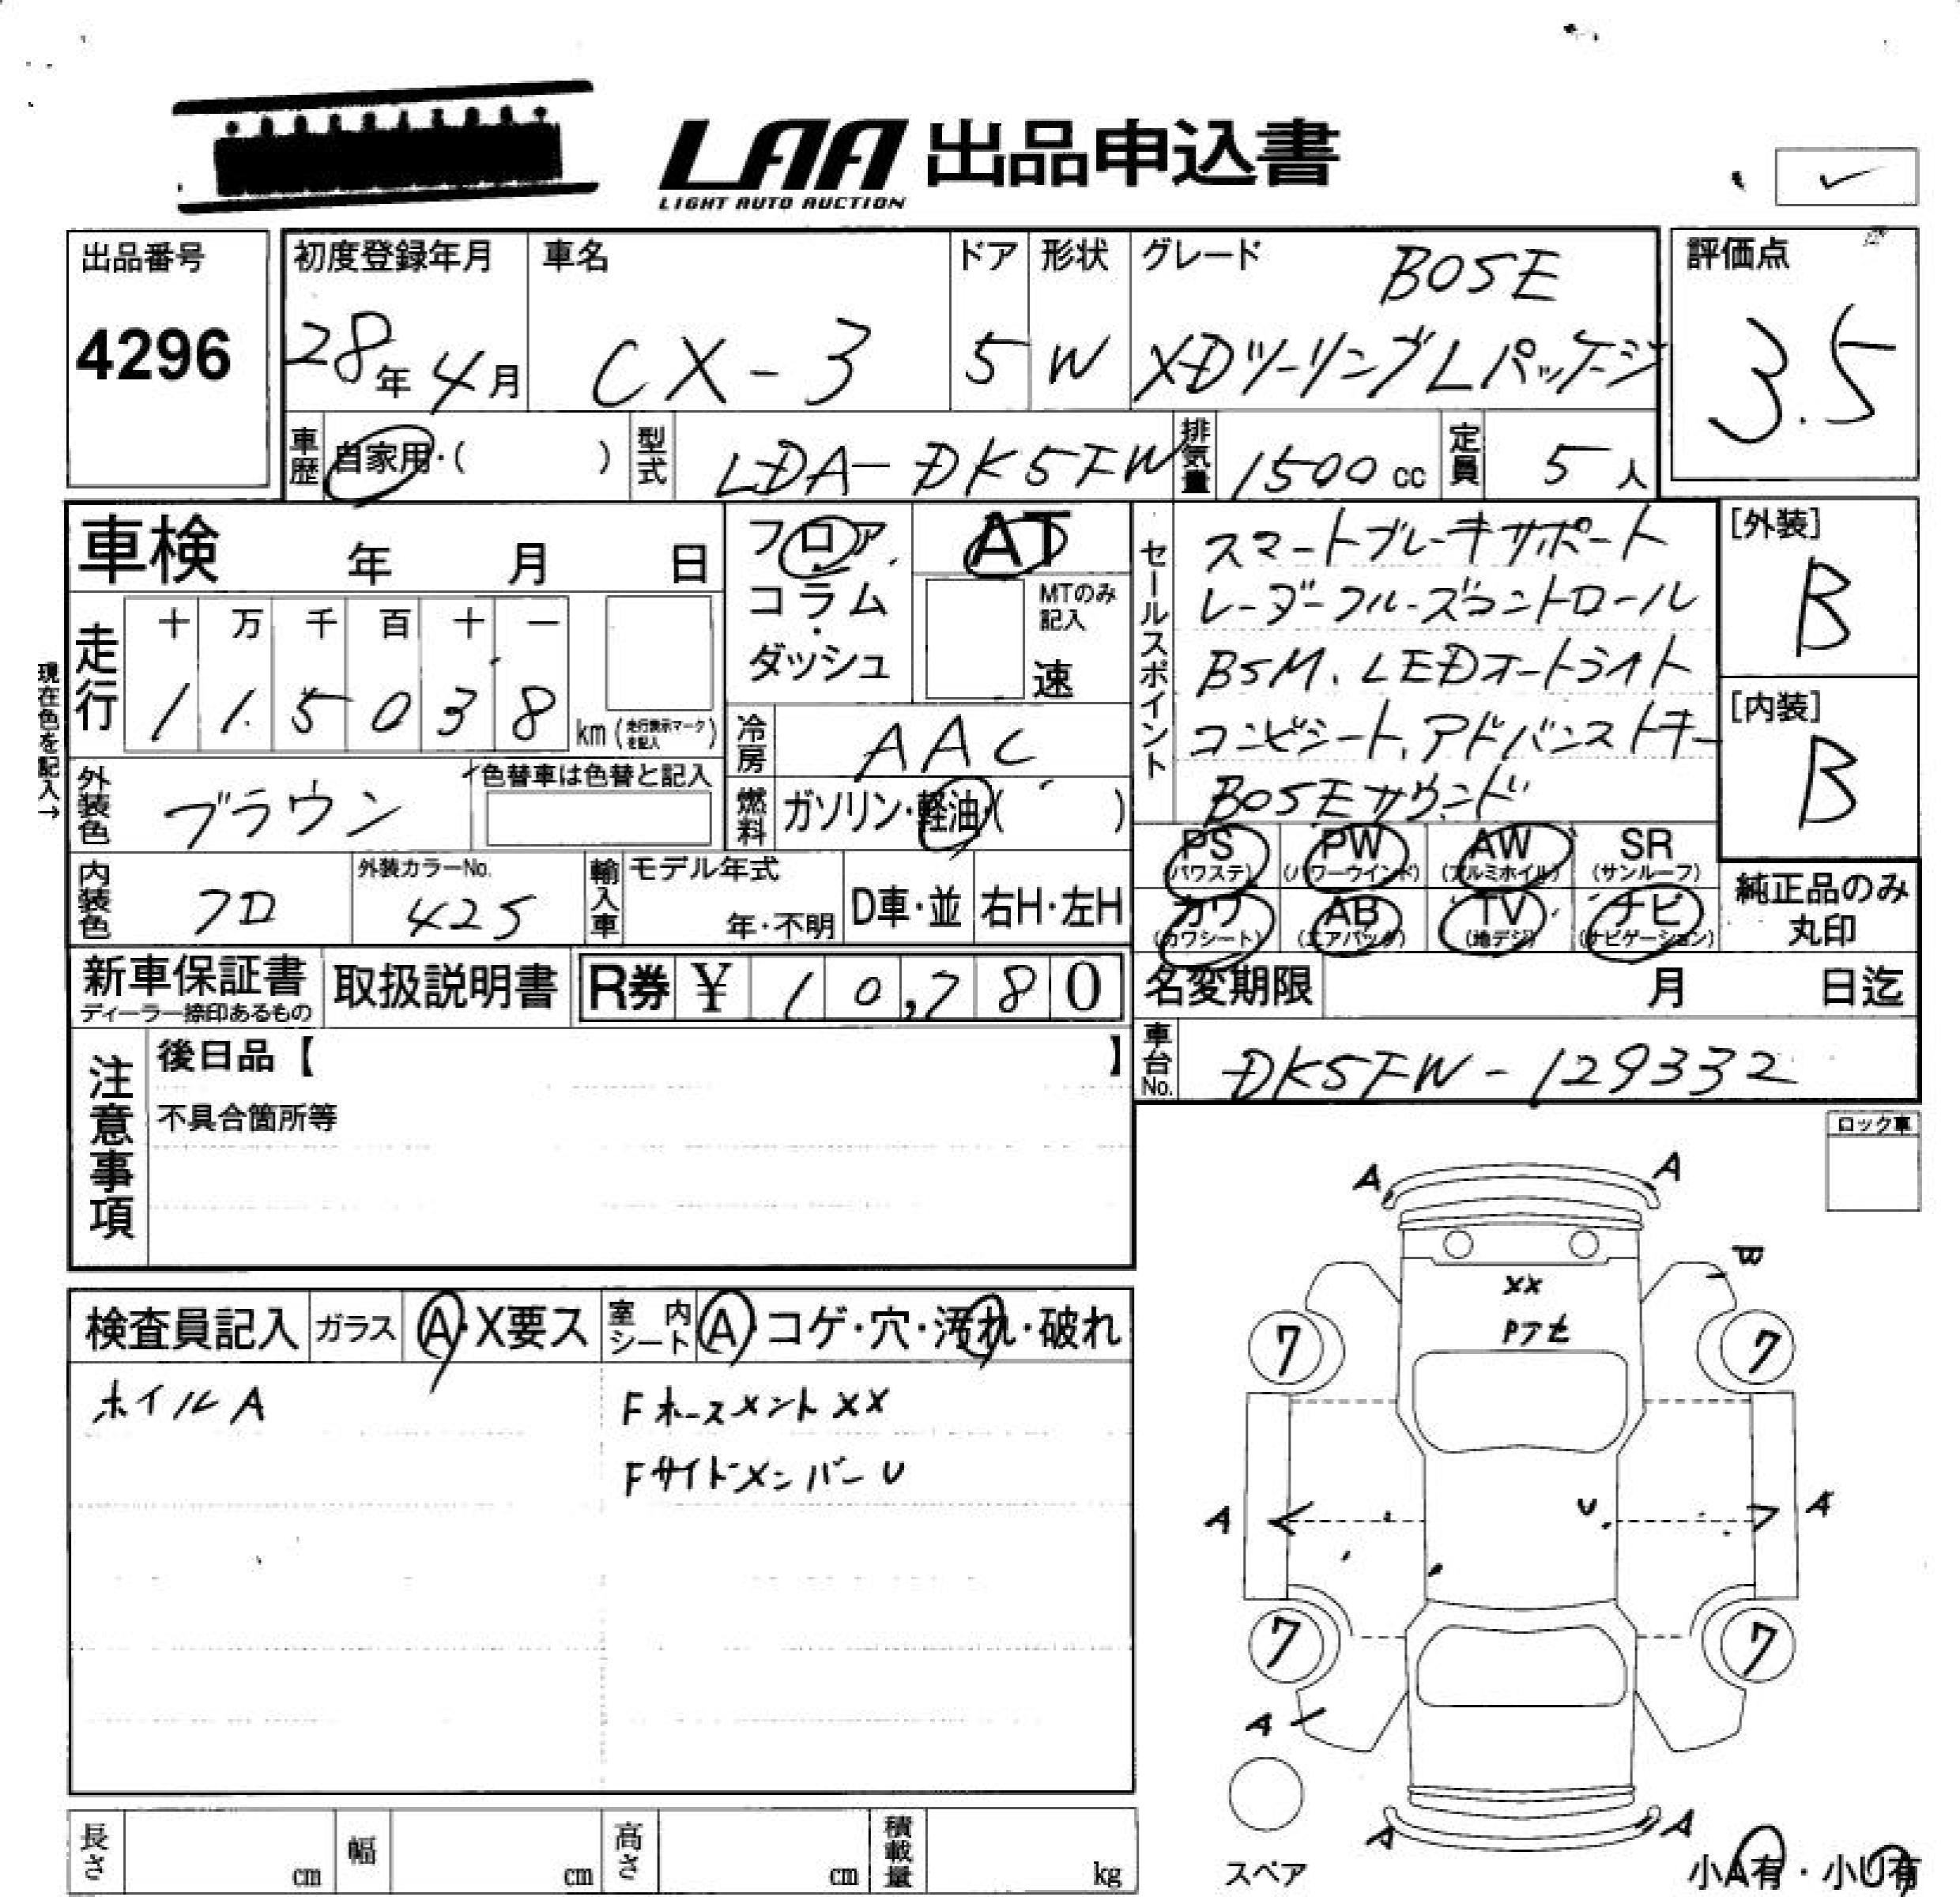 LAA 出品申込書
LIGHT AUTO AUCTION
出品番号
4296
初度登録年月
28年4月
車名
CX-3
ドア
5
形状
W
グレード
BOSE
XDツーリングLパッケージ
評価点
3.5
車歴
自家用・( )
型式
LDA-DK5FW
排気量
1500cc
定員
5人
車検 年 月 日
フロア・
コラム・
ダッシュ
AT
MTのみ
記入
速
現在色を記入→
走行
十 万 千 百 十 一
1 1 5 0 3 8 km(走行表示マークを記入)
冷房
AAC
外装色
ブラウン
色替車は色替と記入
燃料
ガソリン・軽油・( )
内装色
クロ
外装カラーNo.
42S
輸入車
モデル年式
年・不明
D車・並
右H・左H
新車保証書
ディーラー捺印あるもの
取扱説明書
R券 ¥ 10,780
セールスポイント
スマートブレーキサポート
レーダークルーズコントロール
BSM、LEDオートライト
コンビシート、アドバンストキー
BOSEサウンド
[外装]
B
[内装]
B
PS PW AW SR
(パワステ) (パワーウインド) (アルミホイル) (サンルーフ)
カワ AB TV ナビ
(カワシート) (エアバック) (地デジ) (ナビゲーション)
純正品のみ
丸印
名変期限 月 日迄
車台No.
DK5FW-129332
注意事項
後日品【 】
不具合箇所等
ロック車
検査員記入
ガラス
A・X要ス
室内
シート
A・コゲ・穴・汚れ・破れ
ホイルA
Fホースメント XX
Fサイドメンバー U
A A
XX
7 7
A U A
7 7
A
A A
スペア
小A有・小U有
長さ cm 幅 cm 高さ cm 積載量 kg